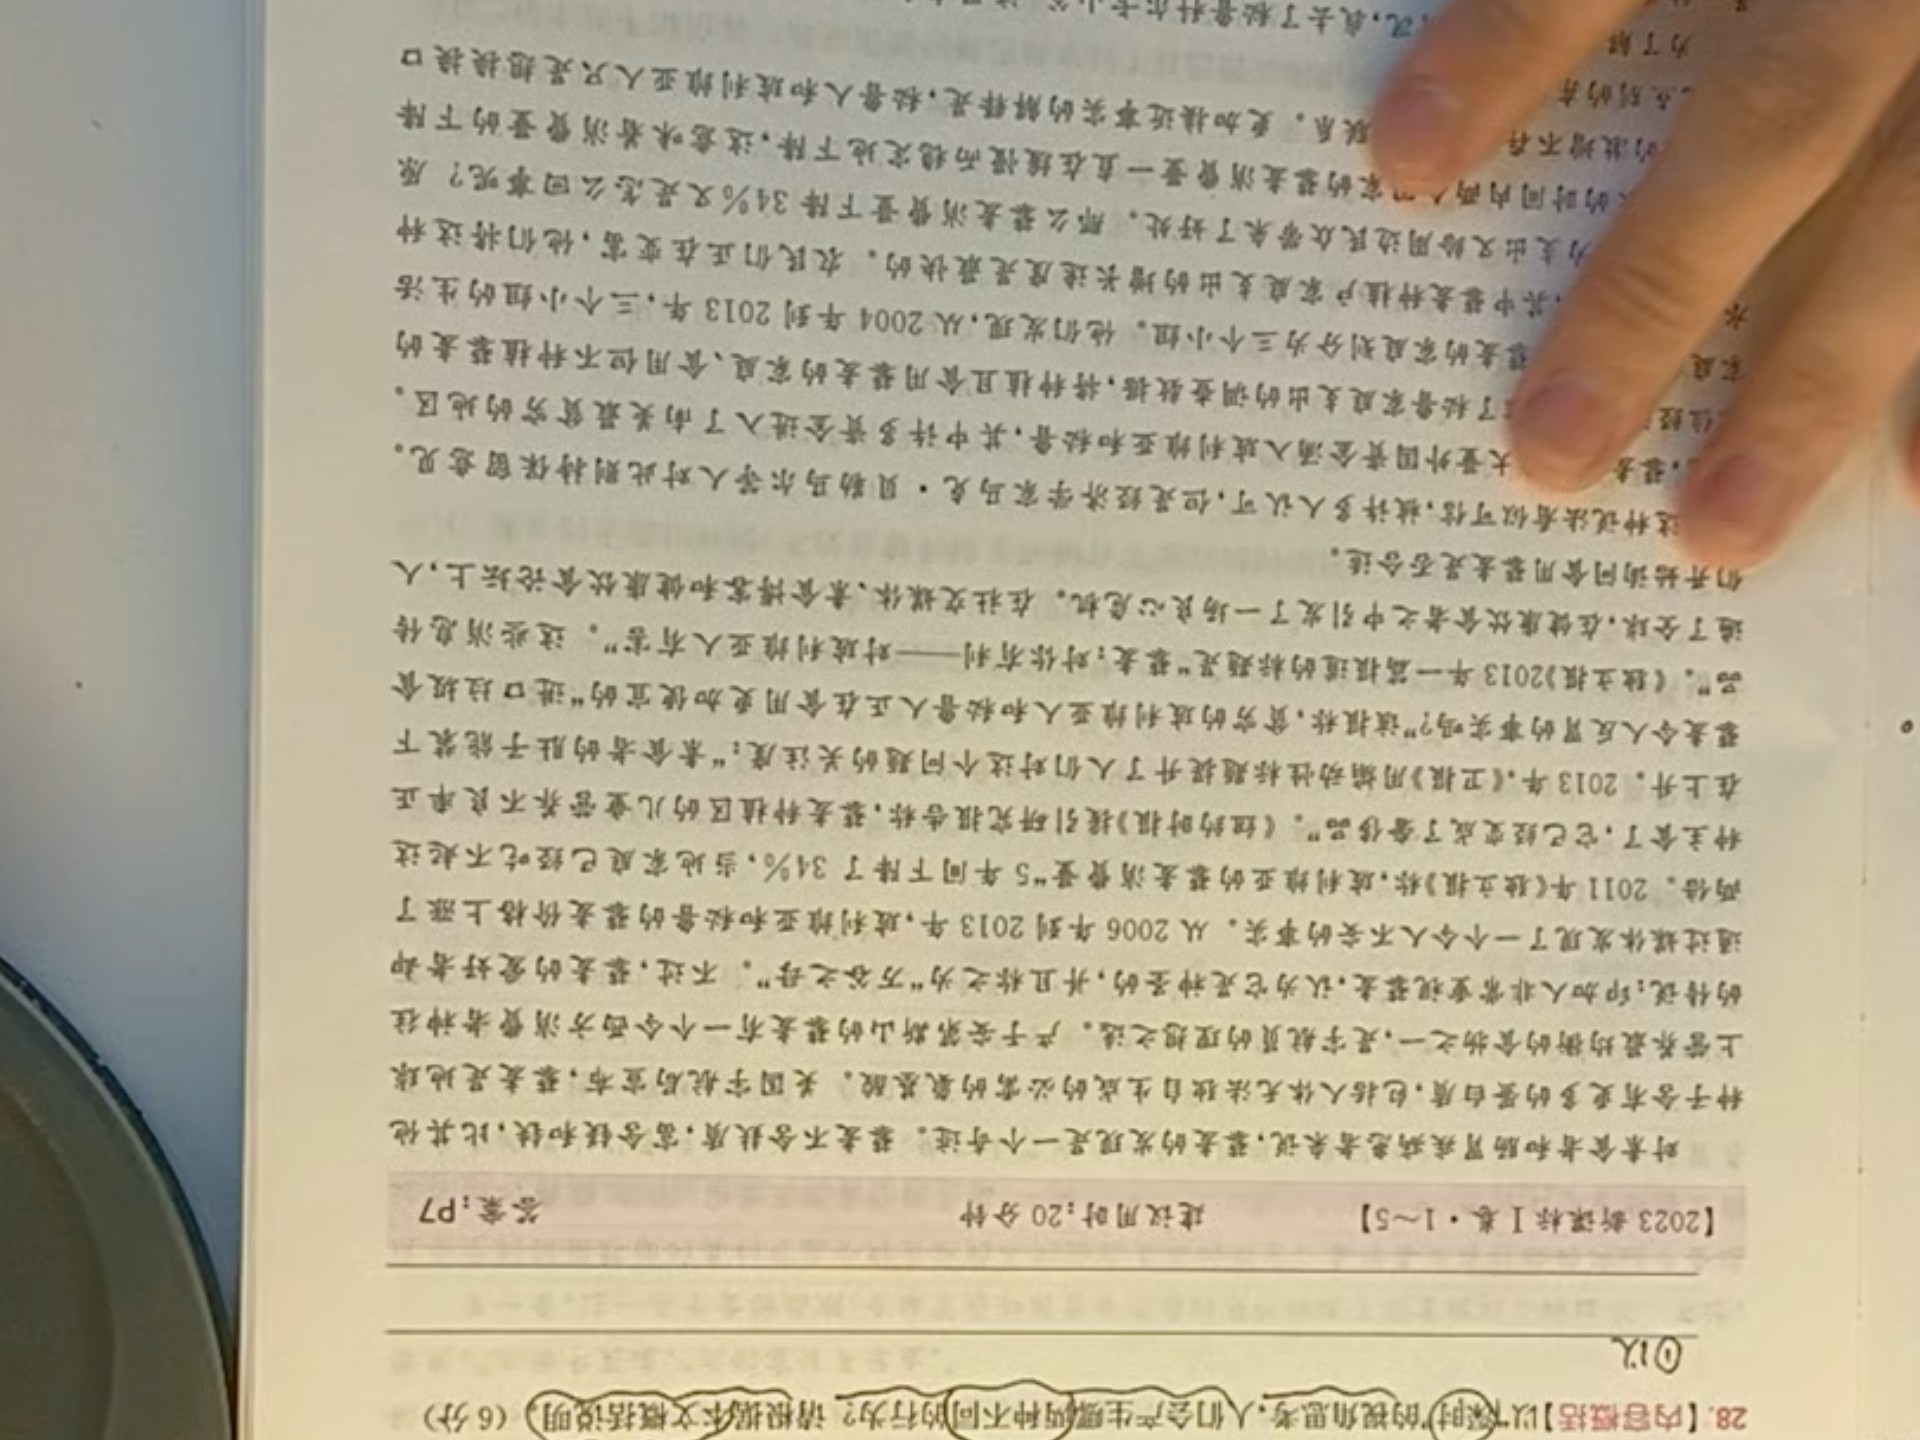 28.【内容概括】以“深时”的视角思考,人们会产生哪两种不同的行为?请根据本文概括说明。(6分)
①以
【2023新课标Ⅰ卷·1~5】 建议用时:20分钟 答案:P7
对素食者和肠胃疾病患者来说,藜麦的发现是一个奇迹。藜麦不含麸质,富含镁和铁,比其他
种子含有更多的蛋白质,包括人体无法独自生成的必需的氨基酸。美国宇航局宣布,藜麦是地球
上营养最均衡的食物之一,是宇航员的理想之选。产于安第斯山的藜麦有一个令西方消费者神往
的传说:印加人非常重视藜麦,认为它是神圣的,并且称之为“万谷之母”。不过,藜麦的爱好者却
通过媒体发现了一个令人不安的事实。从2006年到2013年,玻利维亚和秘鲁的藜麦价格上涨了
两倍。2011年《独立报》称,玻利维亚的藜麦消费量“5年间下降了34%,当地家庭已经吃不起这
种主食了,它已经变成了奢侈品”。《纽约时报》援引研究报告称,藜麦种植区的儿童营养不良率正
在上升。2013年,《卫报》用煽动性标题提升了人们对这个问题的关注度:“素食者的肚子能装下
藜麦令人反胃的事实吗?”该报称,贫穷的玻利维亚人和秘鲁人正在食用更加便宜的“进口垃圾食
品”。《独立报》2013年一篇报道的标题是“藜麦:对你有利——对玻利维亚人有害”。这些消息传
遍了全球,在健康饮食者之中引发了一场良心危机。在社交媒体、素食博客和健康饮食论坛上,人
们开始询问食用藜麦是否合适。
这种说法看似可信,被许多人认可,但是经济学家马克·贝勒马尔等人对此则持保留意见。
,藜麦 大量外国资金涌入玻利维亚和秘鲁,其中许多资金进入了南美最贫穷的地区。
位经 了秘鲁家庭支出的调查数据,将种植且食用藜麦的家庭、食用但不种植藜麦的
家庭 藜麦的家庭划分为三个小组。他们发现,从2004年到2013年,三个小组的生活
水 ,其中藜麦种植户家庭支出的增长速度是最快的。农民们正在变富,他们将这种
力支出又给周边民众带来了好处。那么藜麦消费量下降34%又是怎么回事呢?原
的时间内两个国家的藜麦消费量一直在缓慢而稳定地下降,这意味着消费量的下降
的激增不存 联系。更加接近事实的解释是,秘鲁人和玻利维亚人只是想换换口
别的东
为了解 况,我去了秘鲁